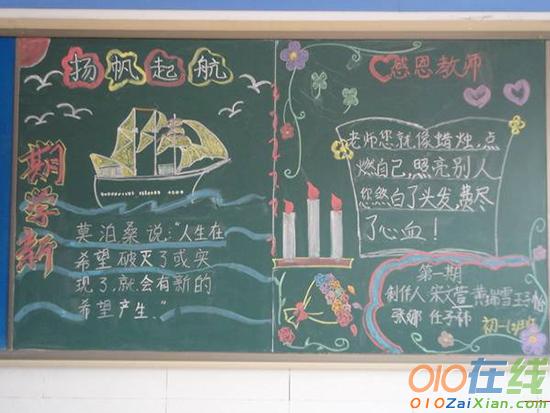 扬帆起航
期学新
莫泊桑说:"人生在
希望破灭了或实
现了,就会有新的
希望产生."
感恩教师
老师您就像蜡烛,点
燃自己,照亮别人
您熬白了头发,费尽
了心血!
第一期
创作人 宋文萱 黄瑞雪
张娜
初一
010在线
010ZaiXian.com